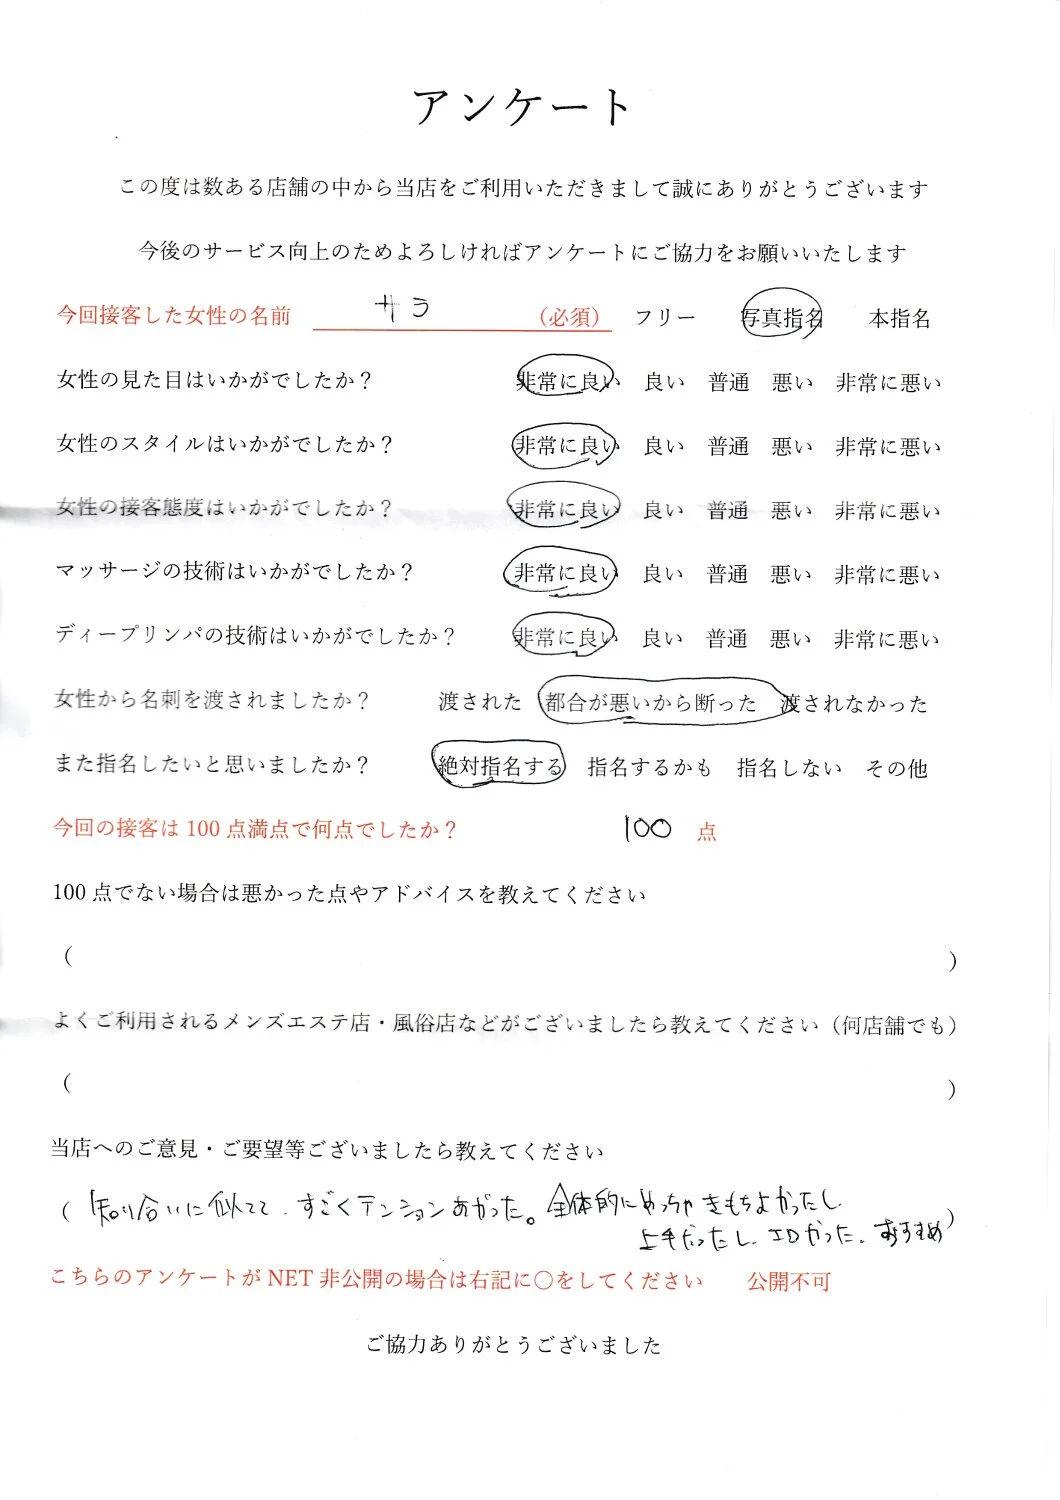 アンケート
この度は数ある店舗の中から当店をご利用いただきまして誠にありがとうございます
今後のサービス向上のためよろしければアンケートにご協力をお願いいたします
今回接客した女性の名前 サラ (必須) フリー 写真指名 本指名
女性の見た目はいかがでしたか？ 非常に良い 良い 普通 悪い 非常に悪い
女性のスタイルはいかがでしたか？ 非常に良い 良い 普通 悪い 非常に悪い
女性の接客態度はいかがでしたか？ 非常に良い 良い 普通 悪い 非常に悪い
マッサージの技術はいかがでしたか？ 非常に良い 良い 普通 悪い 非常に悪い
ディープリンパの技術はいかがでしたか？ 非常に良い 良い 普通 悪い 非常に悪い
女性から名刺を渡されましたか？ 渡された 都合が悪いから断った 渡されなかった
また指名したいと思いましたか？ 絶対指名する 指名するかも 指名しない その他
今回の接客は 100 点満点で何点でしたか？ 100 点
100 点でない場合は悪かった点やアドバイスを教えてください
( )
よくご利用されるメンズエステ店・風俗店などがございましたら教えてください（何店舗でも）
( )
当店へのご意見・ご要望等ございましたら教えてください
( 知り合いに似てて、すごくテンションあがった。全体的にめっちゃきもちよかったし
上手だったし、エロかった、おすすめ )
こちらのアンケートが NET 非公開の場合は右記に〇をしてください 公開不可
ご協力ありがとうございました